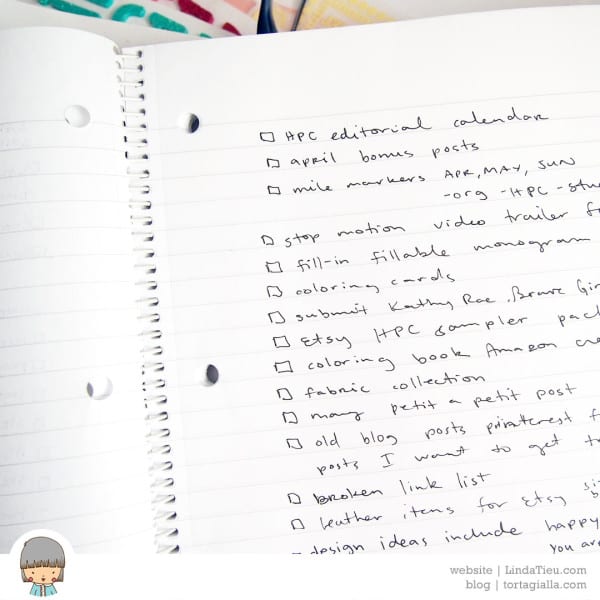 ☐ HPC editorial calendar
☐ april bonus posts
☐ mile markers APR, MAY, JUN
-org -HPC -stu
☐ stop motion video trailer f
☐ fill-in fillable monogram
☐ coloring cards
☐ submit Kathy Rae, Brave Gir
☐ Etsy HPC sampler pac
☐ coloring book Amazon cre
☐ fabric collection
☐ may petit a petit post
☐ old blog posts printerest f
posts I want to get tr
☐ broken link list
☐ leather items for Etsy
- design ideas include happy
you are
website | LindaTieu.com
blog | tortagialla.com